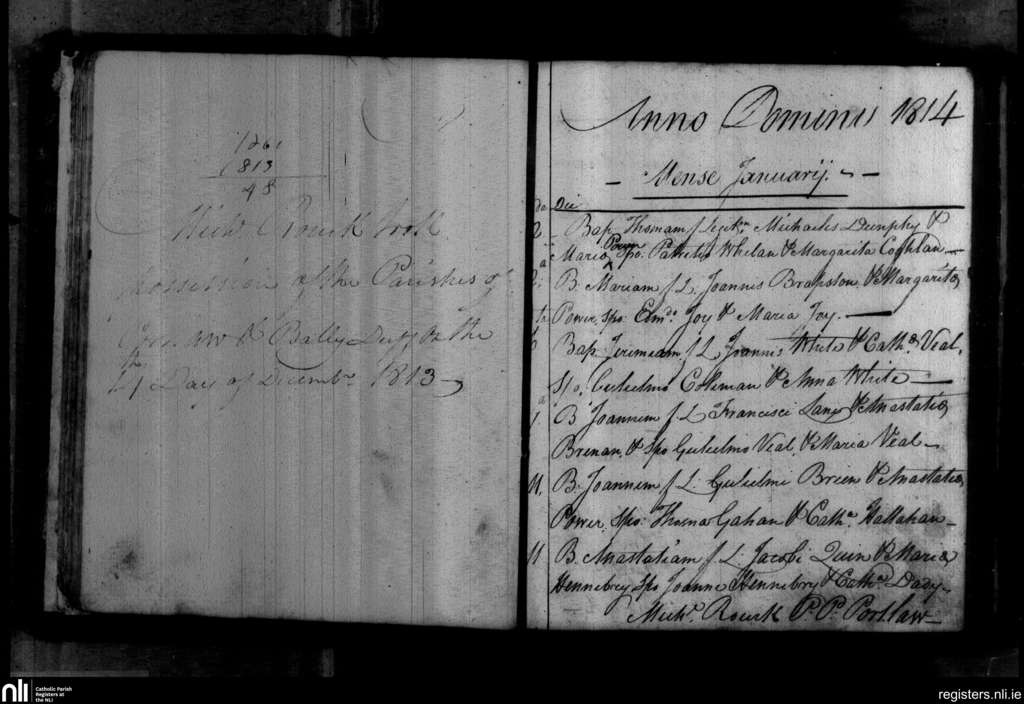 1813
48
Mich. Rourk took
possession of the Parishes of
& Bally Duff on the
Day of Decembr. 1813
Anno Domini 1814
Mense Januarij.
Die
2 Bap. Thomam f Legitm Michaelis Dunphy &
Maria Power Spo: Patritio Whelan & Margarita Coghlan
B. Mariam f L. Joannis Brapston & Margarita
Power, Spo: Edmdo Joy & Maria Joy.
Bap. Jeremiam f L Joannis White & Catha. Veal.
Spo. Gulielmo Coleman & Anna White
B. Joannem f. L Francisci Lane & Anastatia
Brenan, & Spo Gulielmo Veal, & Maria Veal
11. B. Joannem f L. Gulielmi Brien & Anastatia
Power, Spo: Thoma Gahan & Catha. Hallahan
11 B. Anastatiam f L. Jacobi Quin & Maria
Hennebry Spo Joanne Hennebry & Catha. Dady
Michl. Rourk P.P. Portlaw
nli
Catholic Parish
Registers at
the NLI
registers.nli.ie